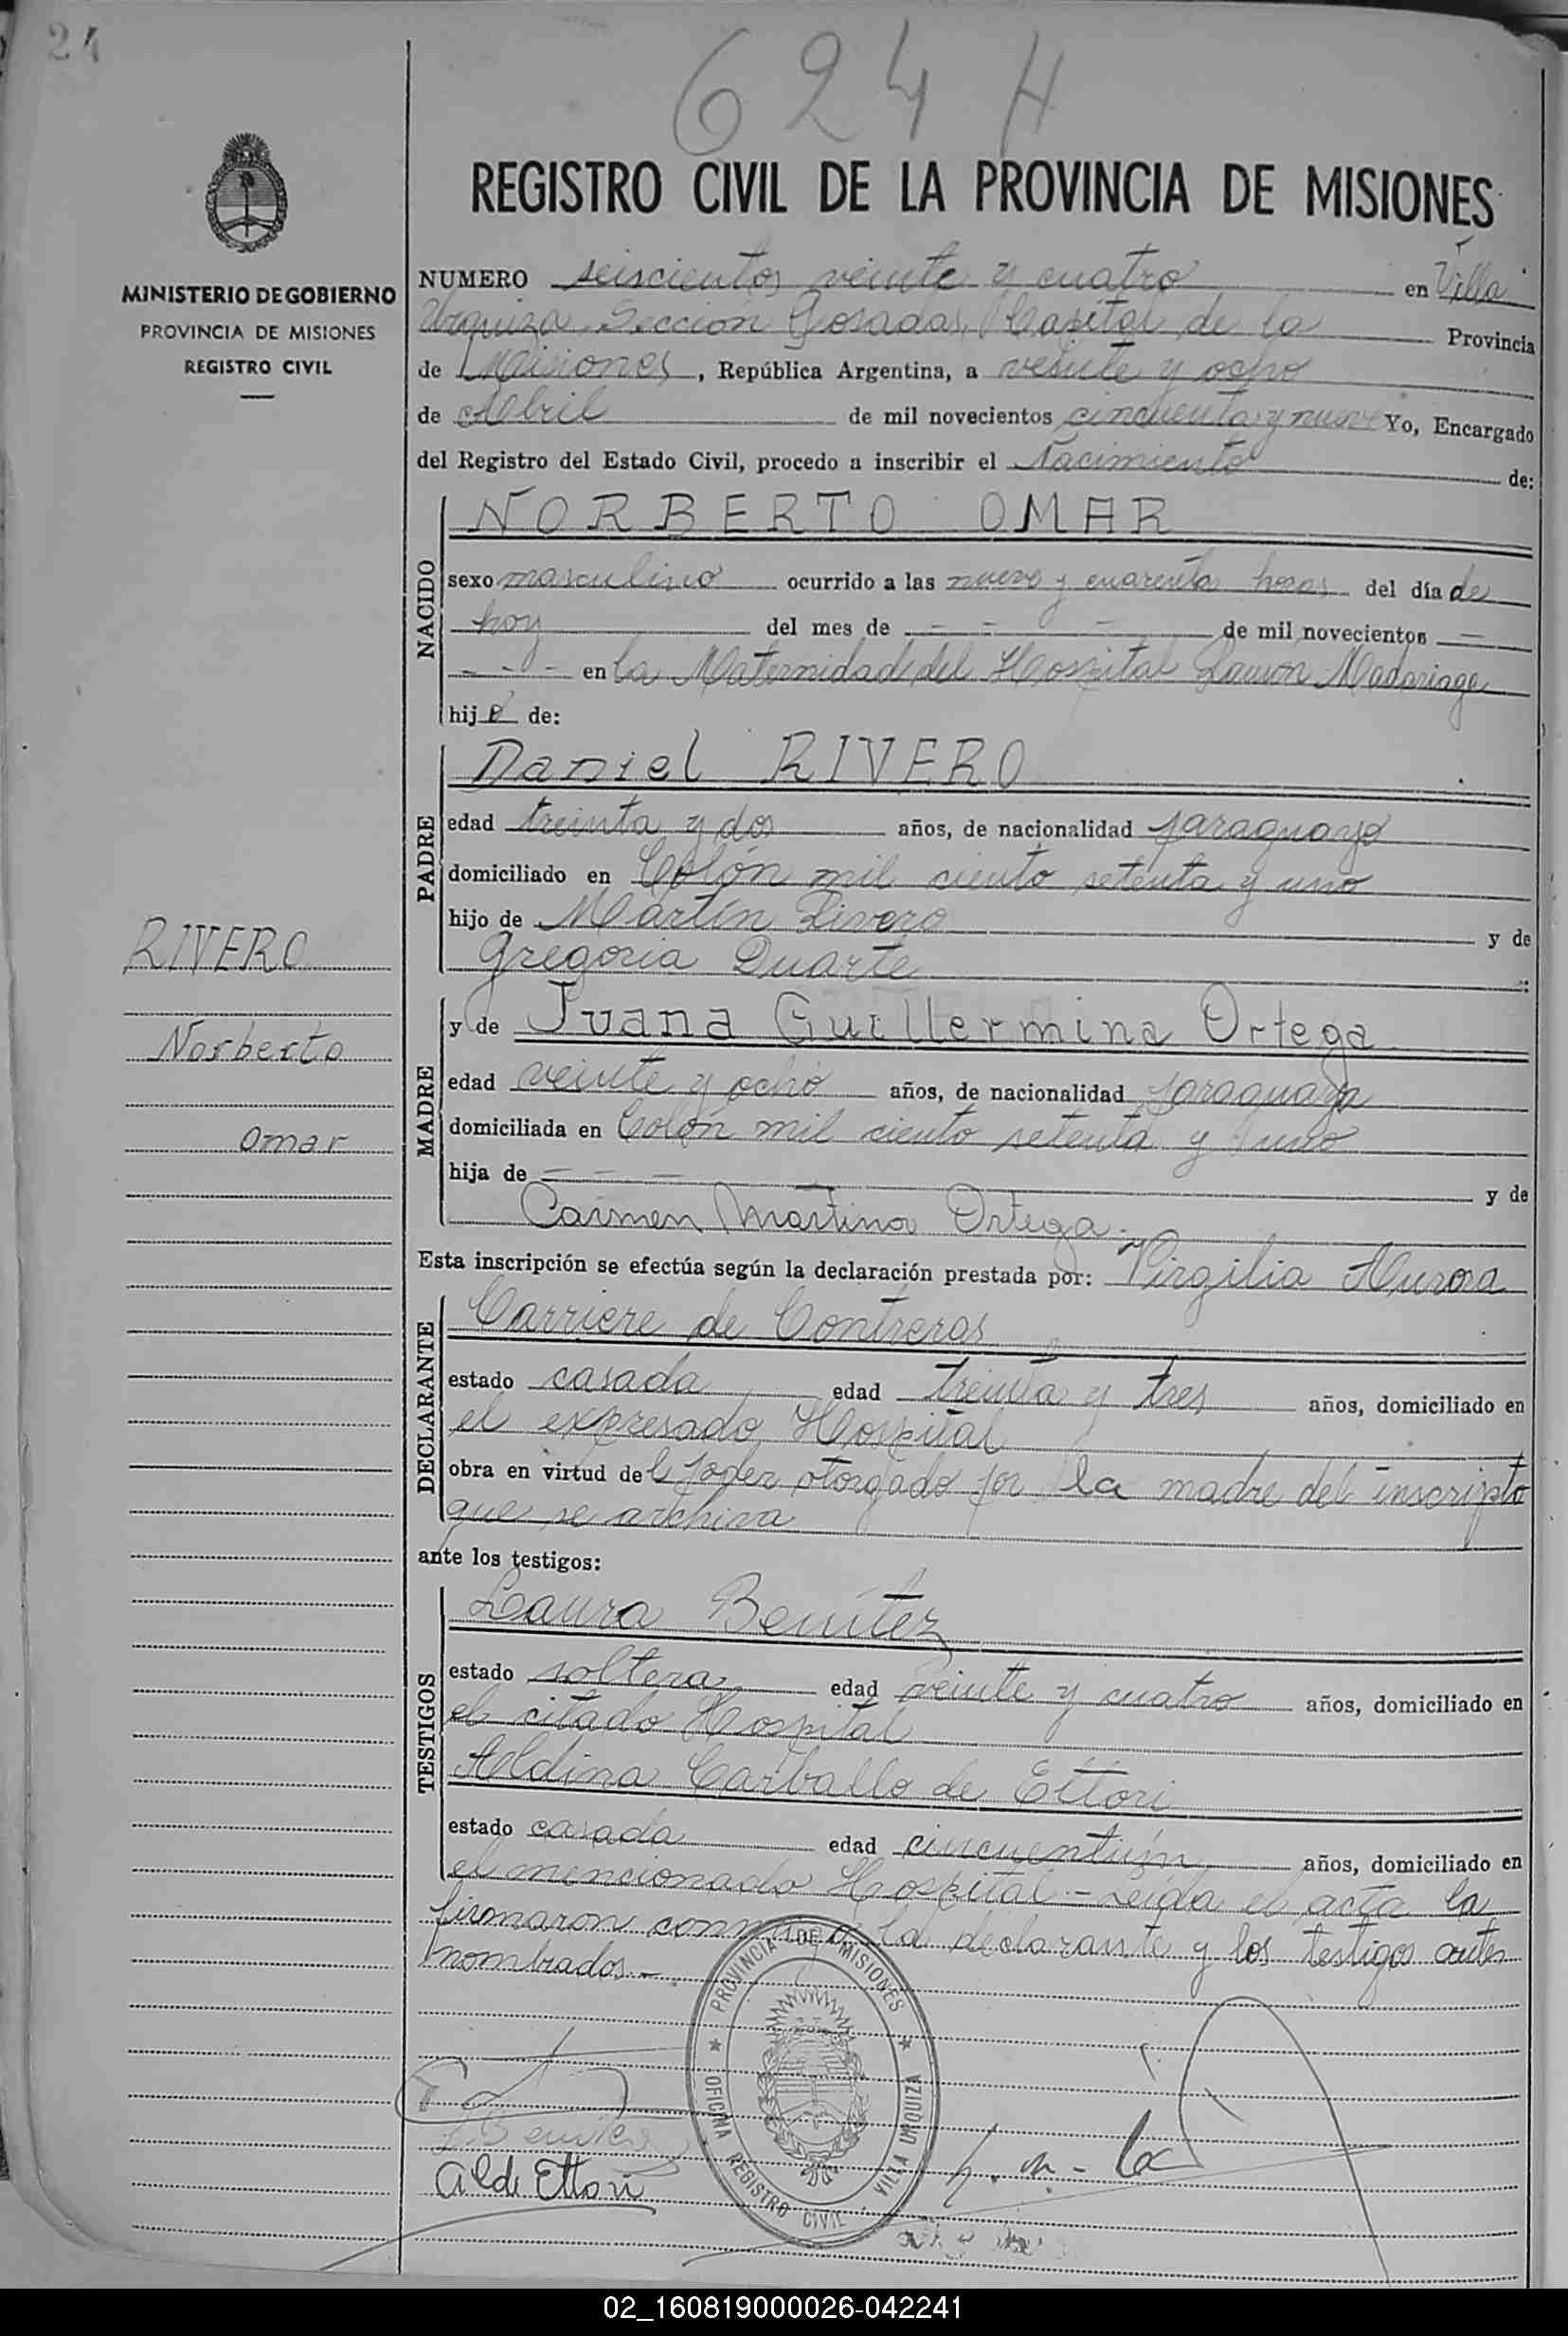 24
624 H
REGISTRO CIVIL DE LA PROVINCIA DE MISIONES
MINISTERIO DE GOBIERNO
PROVINCIA DE MISIONES
REGISTRO CIVIL
NUMERO seiscientos veinte y cuatro en Villa
Urquiza Sección Posadas, Capital de la Provincia
de Misiones, República Argentina, a veinte y ocho
de Abril de mil novecientos cincuenta y nueve Yo, Encargado
del Registro del Estado Civil, procedo a inscribir el Nacimiento de:
NACIDO
NORBERTO OMAR
sexo masculino ocurrido a las nueve y cuarenta horas del día de
hoy del mes de - - - de mil novecientos -
- - - en la Maternidad del Hospital Ramón Madariaga
hijo de:
PADRE
Daniel RIVERO
edad treinta y dos años, de nacionalidad paraguayo
domiciliado en Colón mil ciento setenta y uno
hijo de Martín Rivero y de
Gregoria Duarte
RIVERO
Norberto
Omar
MADRE
y de Juana Guillermina Ortega
edad veinte y ocho años, de nacionalidad paraguaya
domiciliada en Colón mil ciento setenta y uno
hija de - - - y de
Carmen Martina Ortega.
Esta inscripción se efectúa según la declaración prestada por: Virgilia Aurora
DECLARANTE
Carriere de Contreras
estado casada edad treinta y tres años, domiciliado en
el expresado Hospital
obra en virtud del poder otorgado por la madre del inscripto
que se archiva
ante los testigos:
TESTIGOS
Laura Benítez
estado soltera edad veinte y cuatro años, domiciliado en
el citado Hospital
Aldina Carballo de Ettori
estado casada edad cincuentiún años, domiciliado en
el mencionado Hospital - Leída el acta la
firmaron conmigo la declarante y los testigos antes
nombrados.-
PROVINCIA DE MISIONES
OFICINA REGISTRO CIVIL VILLA URQUIZA
L. Benítez
A C de Ettori
02_160819000026-042241